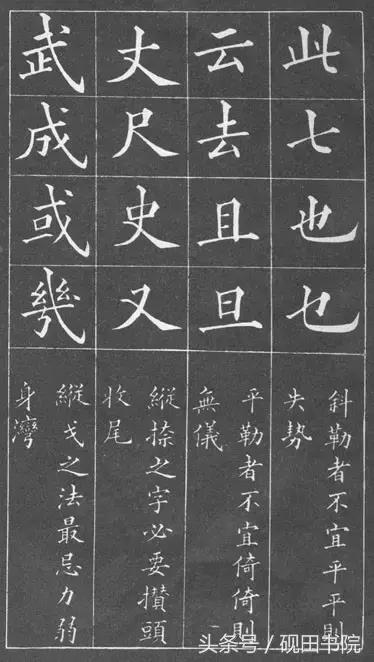 此七也乜
斜勒者不宜平平則
失勢
云去且旦
平勒者不宜倚倚則
無儀
丈尺史又
縱捺之字必要攢頭
收尾
武成或幾
縱戈之法最忌力弱
身灣
头条号 / 砚田书院